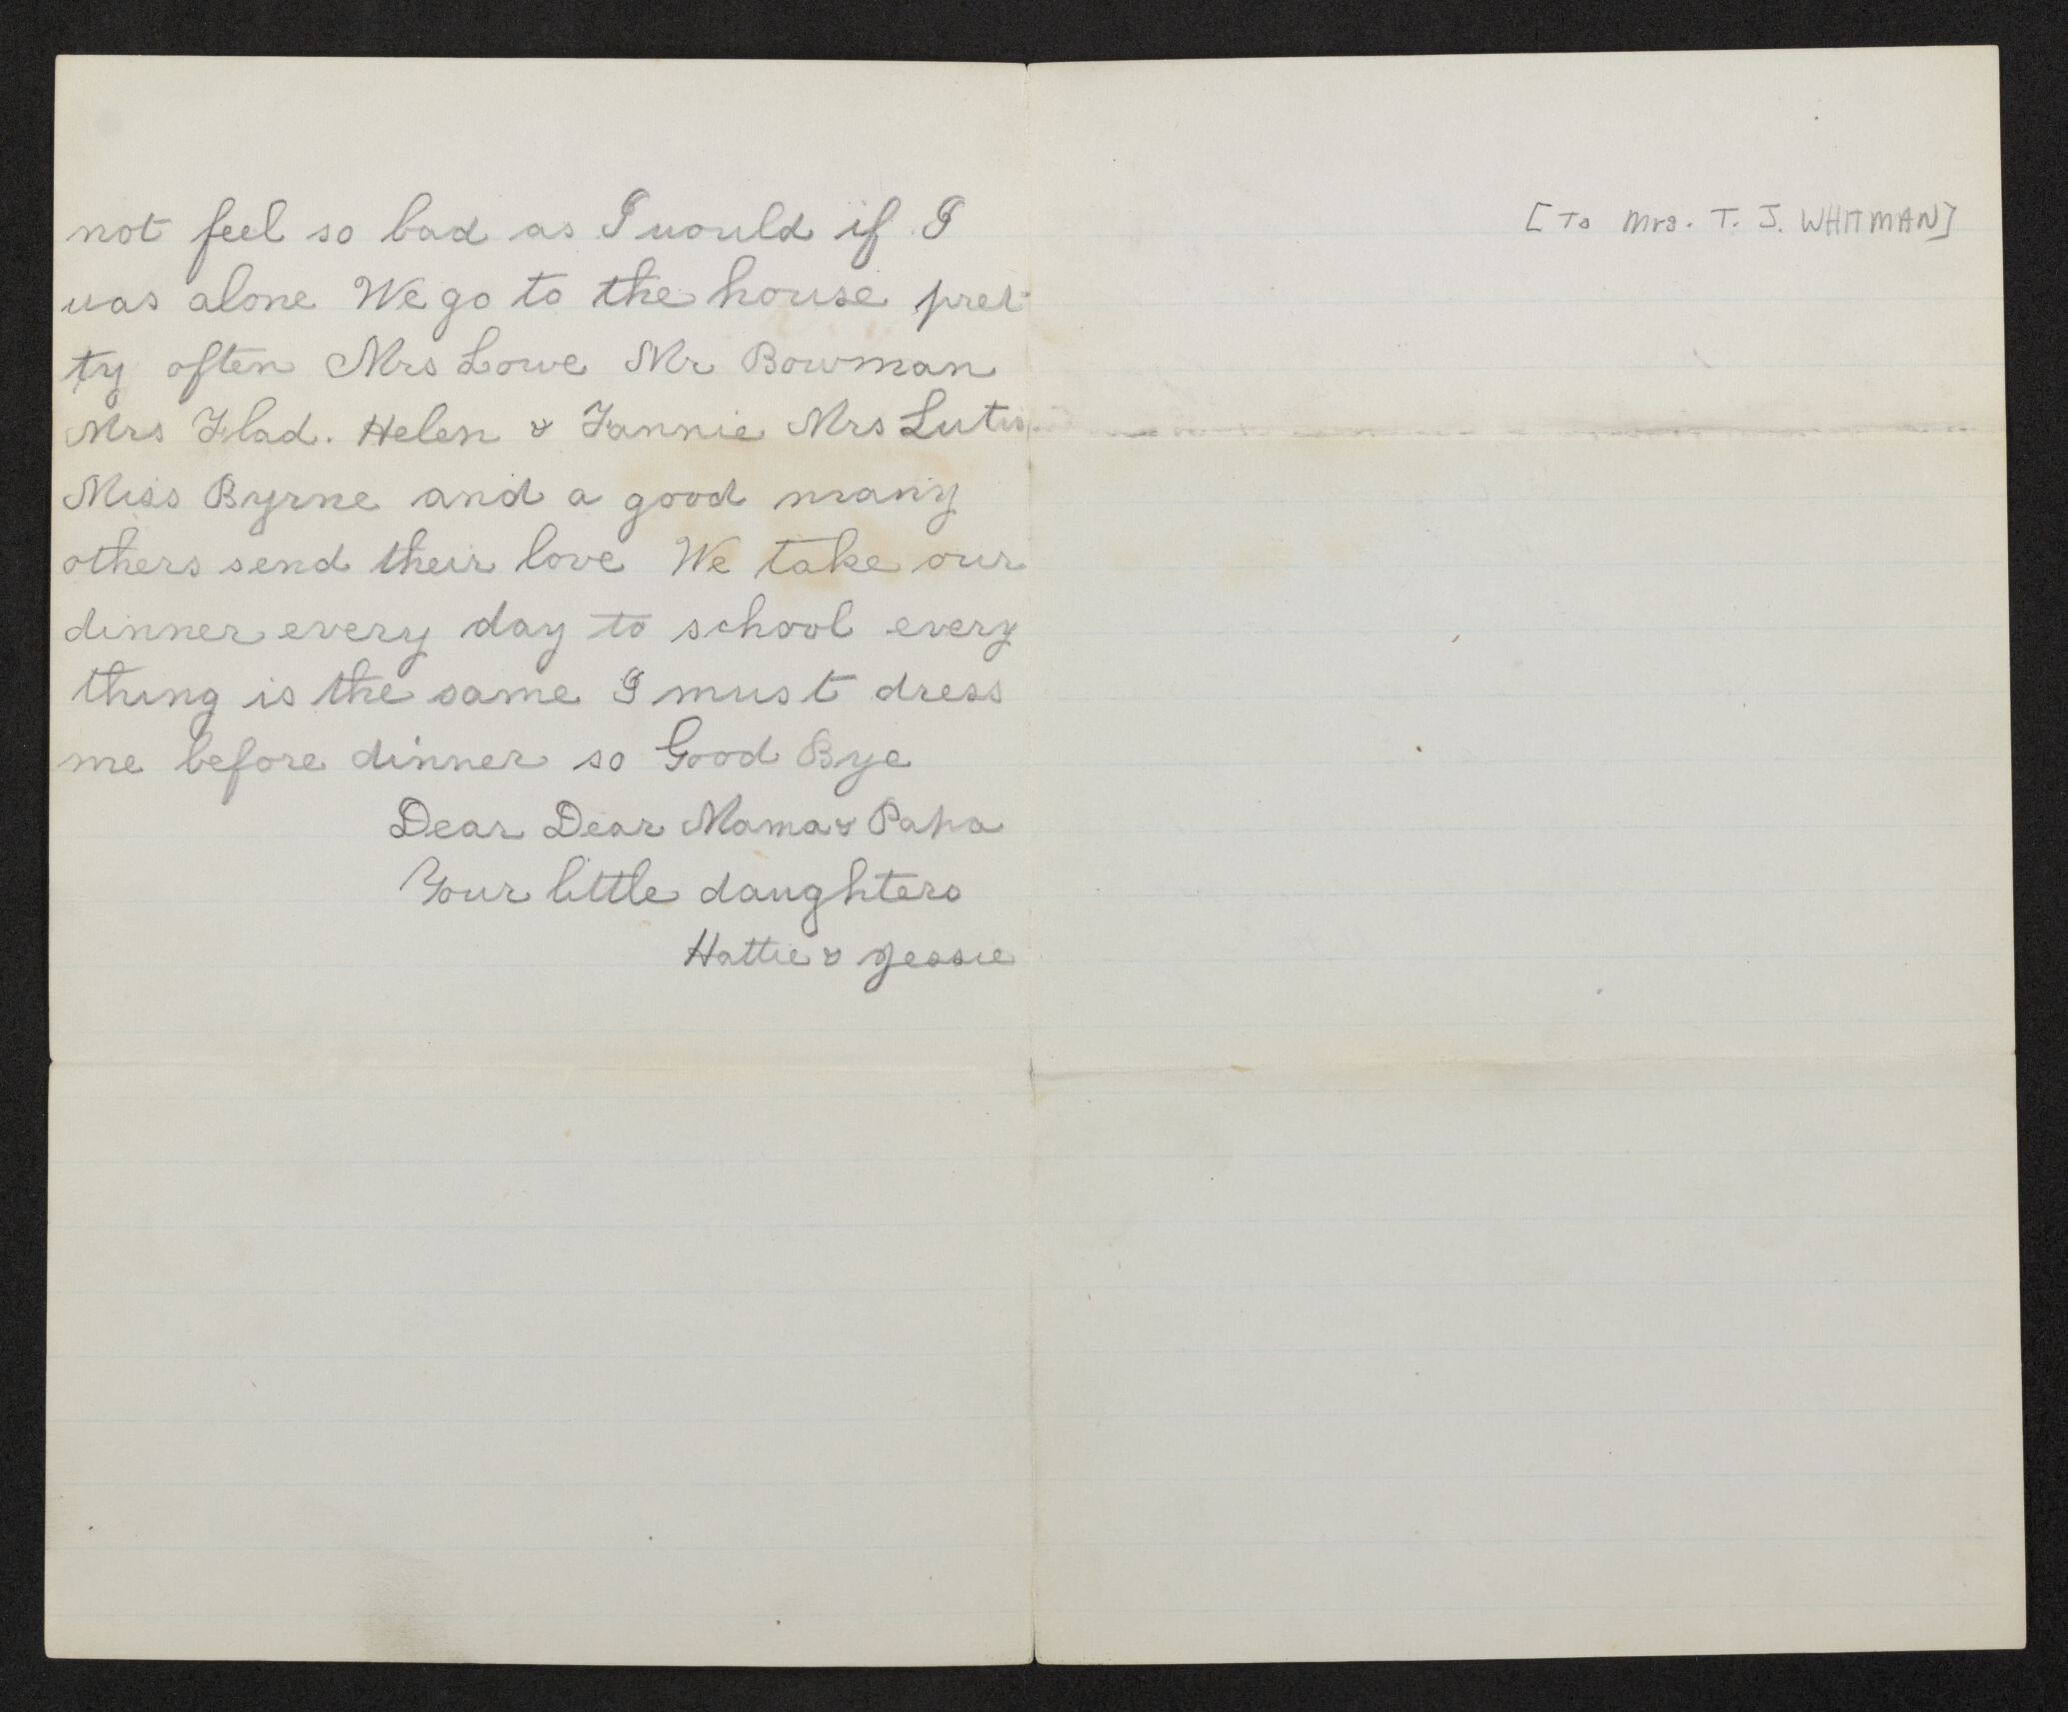 not feel so bad as I would if I
was alone We go to the house pret-
ty often Mrs Lowe Mr Bowman
Mrs Flad. Helen & Fannie Mrs Lutis
Miss Byrne and a good many
others send their love We take our
dinner every day to school every
thing is the same I must dress
me before dinner so Good Bye
Dear Dear Mama & Papa
Your little daughters
Hattie & Jessie
[To Mrs. T. J. WHITMAN]